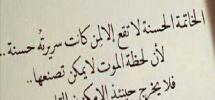 الخاتمة الحسنة لا تقع إلا لمن كانت سريرتُه حسنة ..
لأن لحظة الموت لا يمكن تصنعها..
فلا يخرج حينئذ إلا مكنون